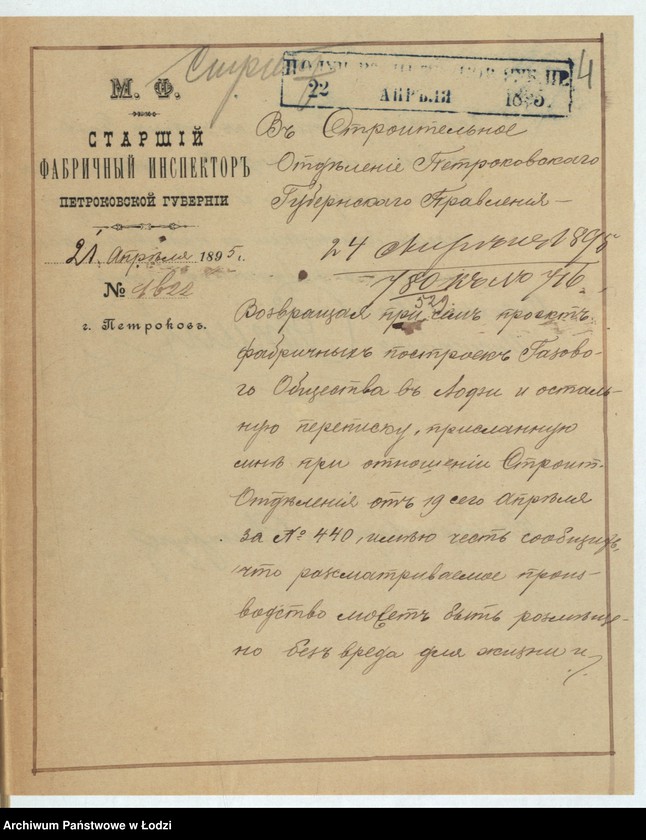 4
22 АПРѢЛЯ 1895.
М. Ф.
СТАРШІЙ
ФАБРИЧНЫЙ ИНСПЕКТОРЪ
ПЕТРОКОВСКОЙ ГУБЕРНІИ
21 Апрѣля 1895 г.
№
г. Петроковъ.
Въ Строительное
Отдѣленіе Петроковскаго
Губернскаго Правленія —
24 1895
Возвращая при семъ проектъ
фабричныхъ построекъ Газово-
го Общества въ Лодзи и осталь-
ную переписку, присланную
мнѣ при отношеніи Строит.
Отдѣленія отъ 19 сего Апрѣля
за № 440, имѣю честь сообщить,
что разсматриваемое произ-
водство можетъ быть размѣще-
но безъ вреда для жизни и
Archiwum Państwowe w Łodzi